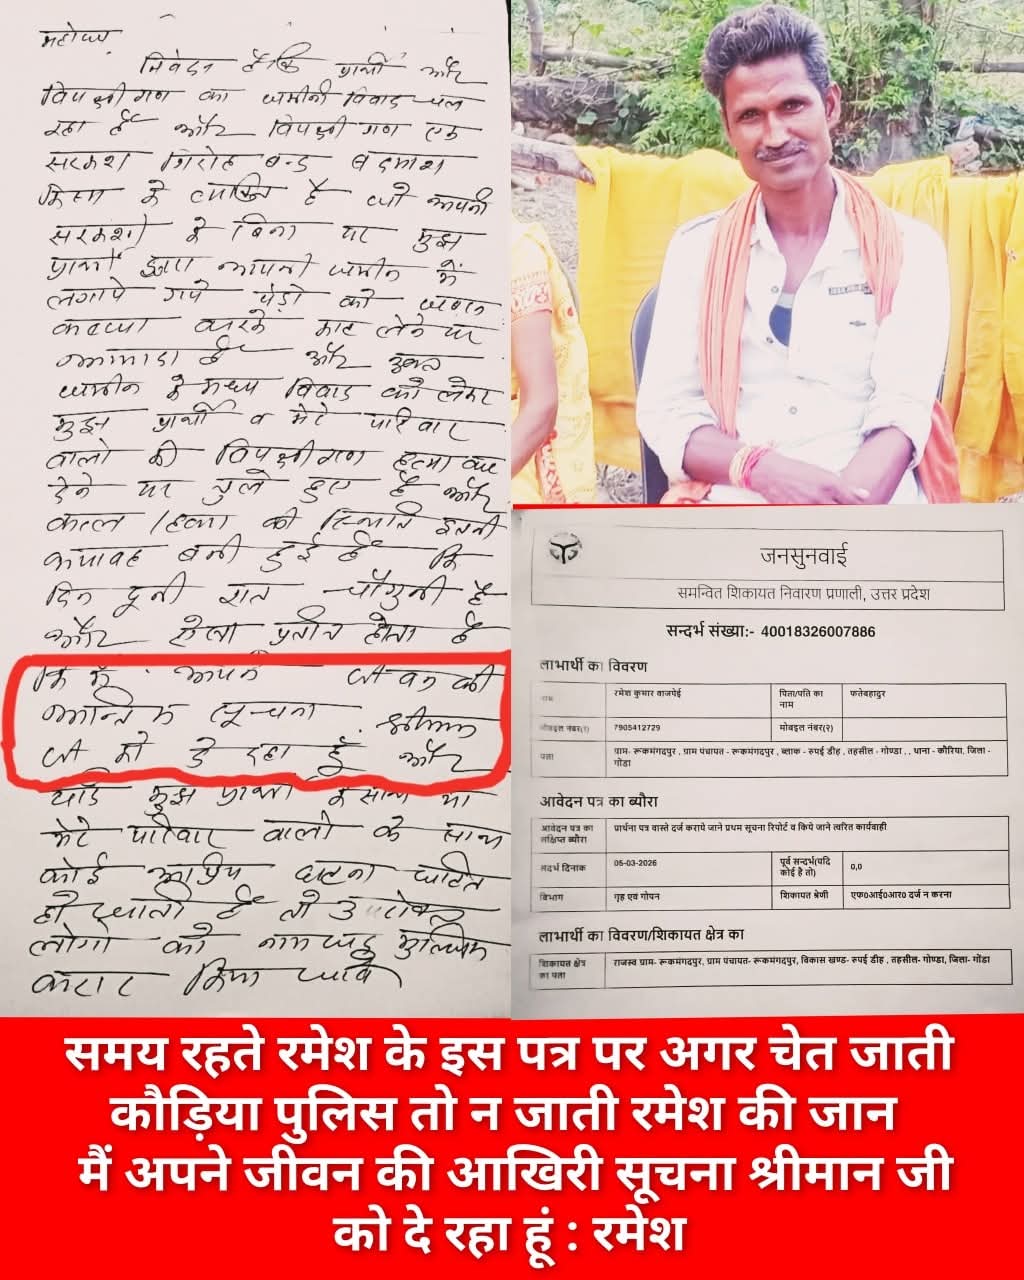 महोदय,
निवेदन है कि प्रार्थी और
विपक्षीगण का जमीनी विवाद चल
रहा है और विपक्षी गण एक
सरकश गिरोह बन्द बदमाश
किस्म के व्यक्ति है जो अपनी
सरकशी के बिना पर मुझ
प्रार्थी द्वारा अपनी जमीन में
लगाये गये पेड़ो को जबरन
कब्जा करके काट लेने पर
आमादा है और उक्त
जमीन के मध्य विवाद को लेकर
मुझ प्रार्थी व मेरे परिवार
वालो की विपक्षीगण हत्या कर
देने पर तुले हुए है और
कत्ल / हत्या की स्थिति इतनी
भयावह बनी हुई है कि
दिन दूनी रात चौगुनी है
और ऐसा प्रतीत होता है
कि मैं अपने जीवन की
अन्तिम सूचना श्रीमान
जी को दे रहा हूँ और
यदि मुझ प्रार्थी के साथ या
मेरे परिवार वालो के साथ
कोई अप्रिय घटना घटित
हो जाती है तो उपरोक्त
लोगो को नामजद मुल्जिम
करार किया जावे
जनसुनवाई
समन्वित शिकायत निवारण प्रणाली, उत्तर प्रदेश
सन्दर्भ संख्या:- 40018326007886
लाभार्थी का विवरण
नाम रमेश कुमार वाजपेई पिता/पति का नाम फतेबहादुर
मोबइल नंबर(१) 7905412729 मोबइल नंबर(२)
पता ग्राम- रूकमंगदपुर , ग्राम पंचायत - रूकमंगदपुर , ब्लाक - रुपई डीह , तहसील - गोण्डा , , थाना - कौरिया, जिला -
गोंडा
आवेदन पत्र का ब्यौरा
आवेदन पत्र का संक्षिप्त ब्यौरा प्रार्थना पत्र वास्ते दर्ज कराये जाने प्रथम सूचना रिपोर्ट व किये जाने त्वरित कार्यवाही
संदर्भ दिनांक 05-03-2026 पूर्व सन्दर्भ(यदि कोई है तो) 0,0
विभाग गृह एवं गोपन शिकायत श्रेणी एफ0आई0आर0 दर्ज न करना
लाभार्थी का विवरण/शिकायत क्षेत्र का
शिकायत क्षेत्र का पता राजस्व ग्राम- रूकमंगदपुर, ग्राम पंचायत- रूकमंगदपुर, विकास खण्ड- रुपई डीह , तहसील- गोण्डा, जिला- गोंडा
समय रहते रमेश के इस पत्र पर अगर चेत जाती
कौड़िया पुलिस तो न जाती रमेश की जान
मैं अपने जीवन की आखिरी सूचना श्रीमान जी
को दे रहा हूं : रमेश